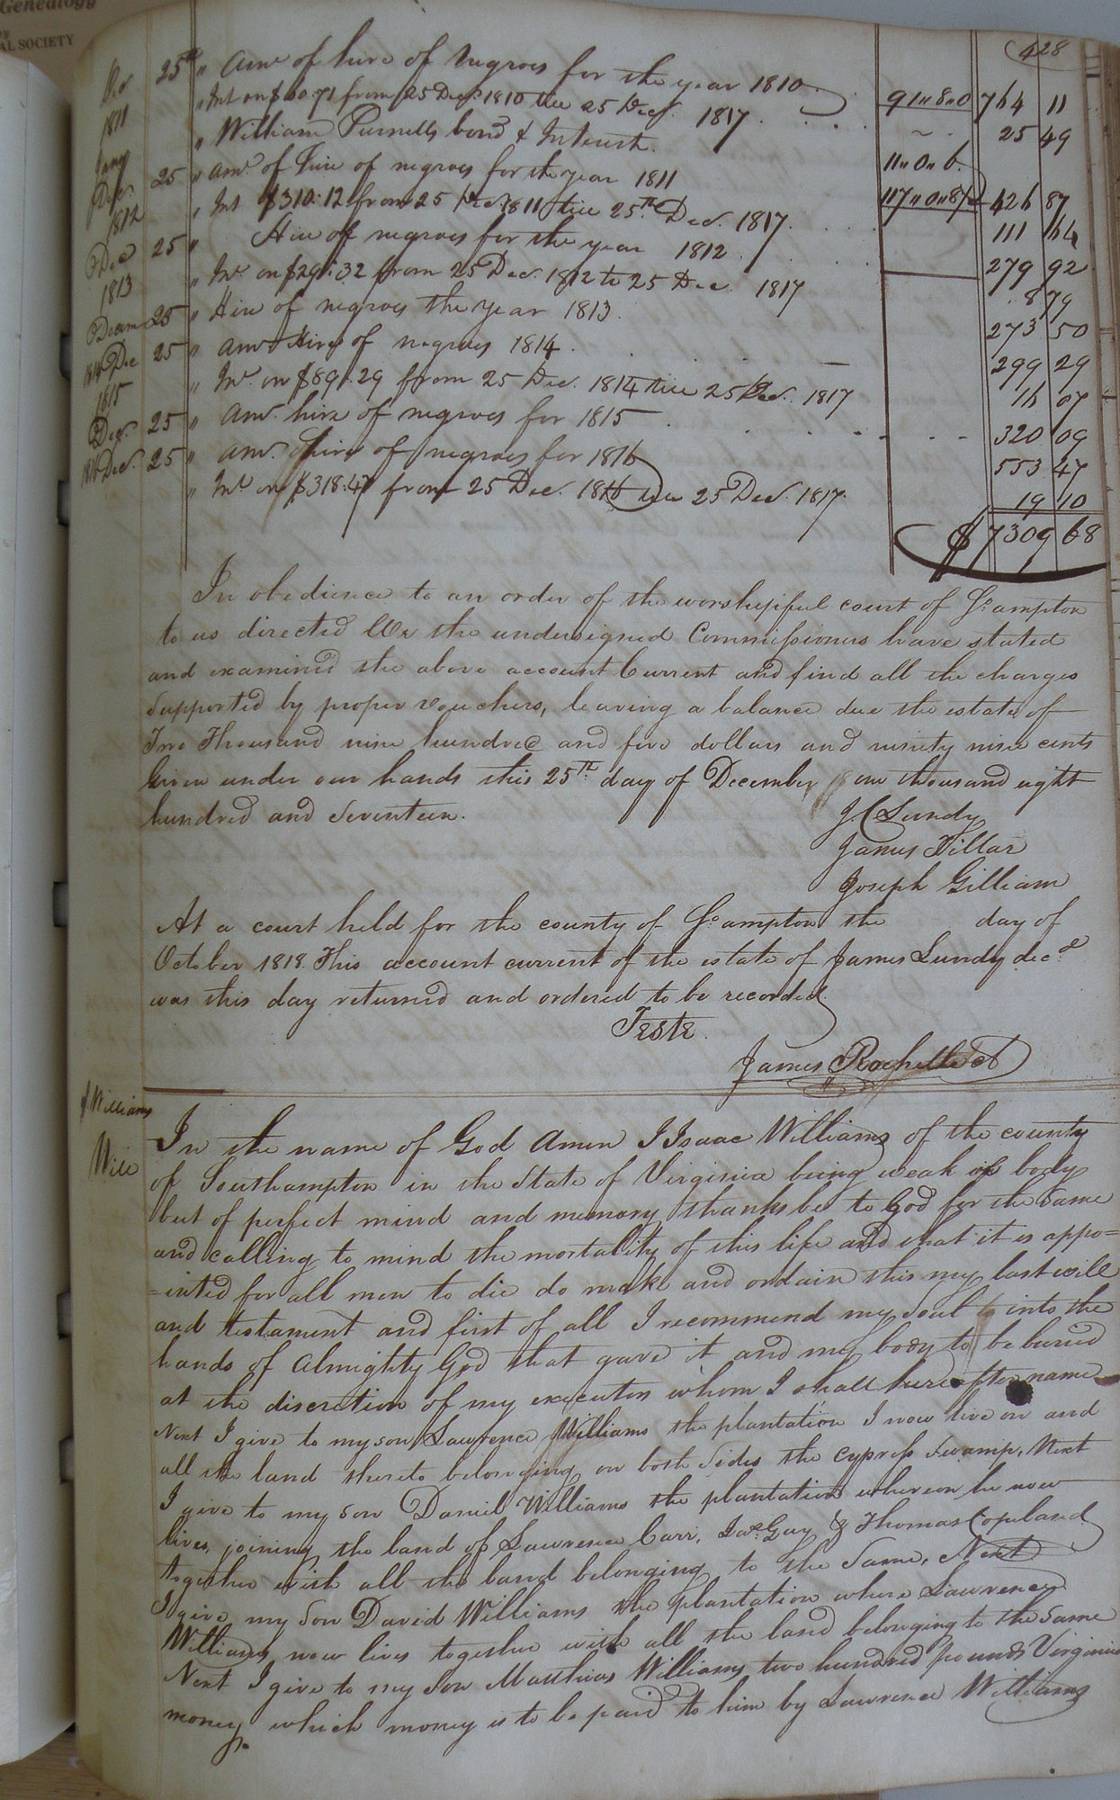 Genealogy
AL SOCIETY
428
Dec 25th " Amt of hire of Negroes for the year 1810 91"8"0 764 11
1811 " Int on $ 60.71 from 25 Decr 1810 till 25 Decr 1817 25 49
" William Purnells bond & Interest 11"0"6
Decr 25 " Amt of hire of negroes for the year 1811 117"0"8 426 87
1812 " Int $310.12 from 25 Decr 1811 till 25th Decr 1817 111 64
Dec 25 " Hire of negroes for the year 1812 279 92
1813 " Int on $ 32 from 25 Dec. 1812 to 25 Dec 1817 8 79
25 " Hire of negroes the year 1813 273 50
Dec 25 " Amt Hire of negroes 1814 299 29
1815 " Int on $89.29 from 25 Dec. 1814 till 25 Dec. 1817 16 07
Decr 25 " Amt hire of negroes for 1815 320 09
Dec. 25 " Amt. Hire of negroes for 1816 553 47
" Int on $318.47 from 25 Dec. 1816 till 25 Dec. 1817. 19 10
$ 7309 68
In obedience to an order of the worshipful court of So ampton
to us directed We the undersigned Commissioners have stated
and examined the above account Current and find all the charges
supported by proper vouchers, leaving a balance due the estate of
Two Thousand nine hundred and five dollars and ninety nine cents
Given under our hands this 25th day of December one thousand eight
hundred and seventeen.
J C Lundy
James Fillar
Joseph Gilliam
At a court held for the county of So ampton the day of
October 1818. This account current of the estate of James Lundy decd
was this day returned and ordered to be recorded
Teste.
James Rochelle Ct
I Williams
Will
In the name of God Amen I Isaac Williams of the county
of Southampton in the State of Virginia being weak of body
but of perfect mind and memory thanks be to God for the same
and calling to mind the mortality of this life and that it is appo=
=inted for all men to die do make and ordain this my last will
and testament and first of all I recommend my soul into the
hands of Almighty God that gave it and my body to be buried
at the discretion of my executors whom I shall hereafter name
Next I give to my son Lawrence Williams the plantation I now live on and
all the land thereto belonging on both sides the cypress swamp, Next
I give to my son Daniel Williams the plantation whereon he now
lives, joining the land of Lawrence Carr, Jas Guy & Thomas Copeland
together with all the land belonging to the same, Next
I give my son David Williams the plantation where Lawrence
Williams now lives together with all the land belonging to the same
Next I give to my son Matthew Williams two hundred pounds Virginia
money, which money is to be paid to him by Lawrence Williams